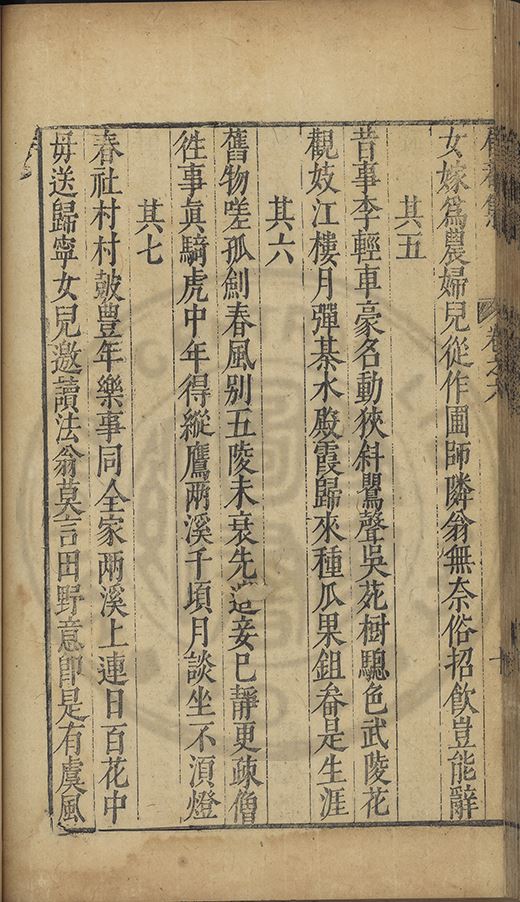 卷之六
十
女嫁爲農婦兒從作圃師隣翁無奈俗招飲豈能辭
其五
昔事李輕車豪名動狹斜鸎聲吳苑樹驄色武陵花
觀妓江樓月彈棊水殿霞歸來種瓜果鉏畚是生涯
其六
舊物嗟孤劍春風别五陵未衰先遣妾已靜更疎僧
徃事眞騎虎中年得縱鷹兩溪千頃月談坐不湏燈
其七
春社村村皷豊年樂事同全家兩溪上連日百花中
毋送歸寧女兒邀讀法翁莫言田野意卽是有虞風